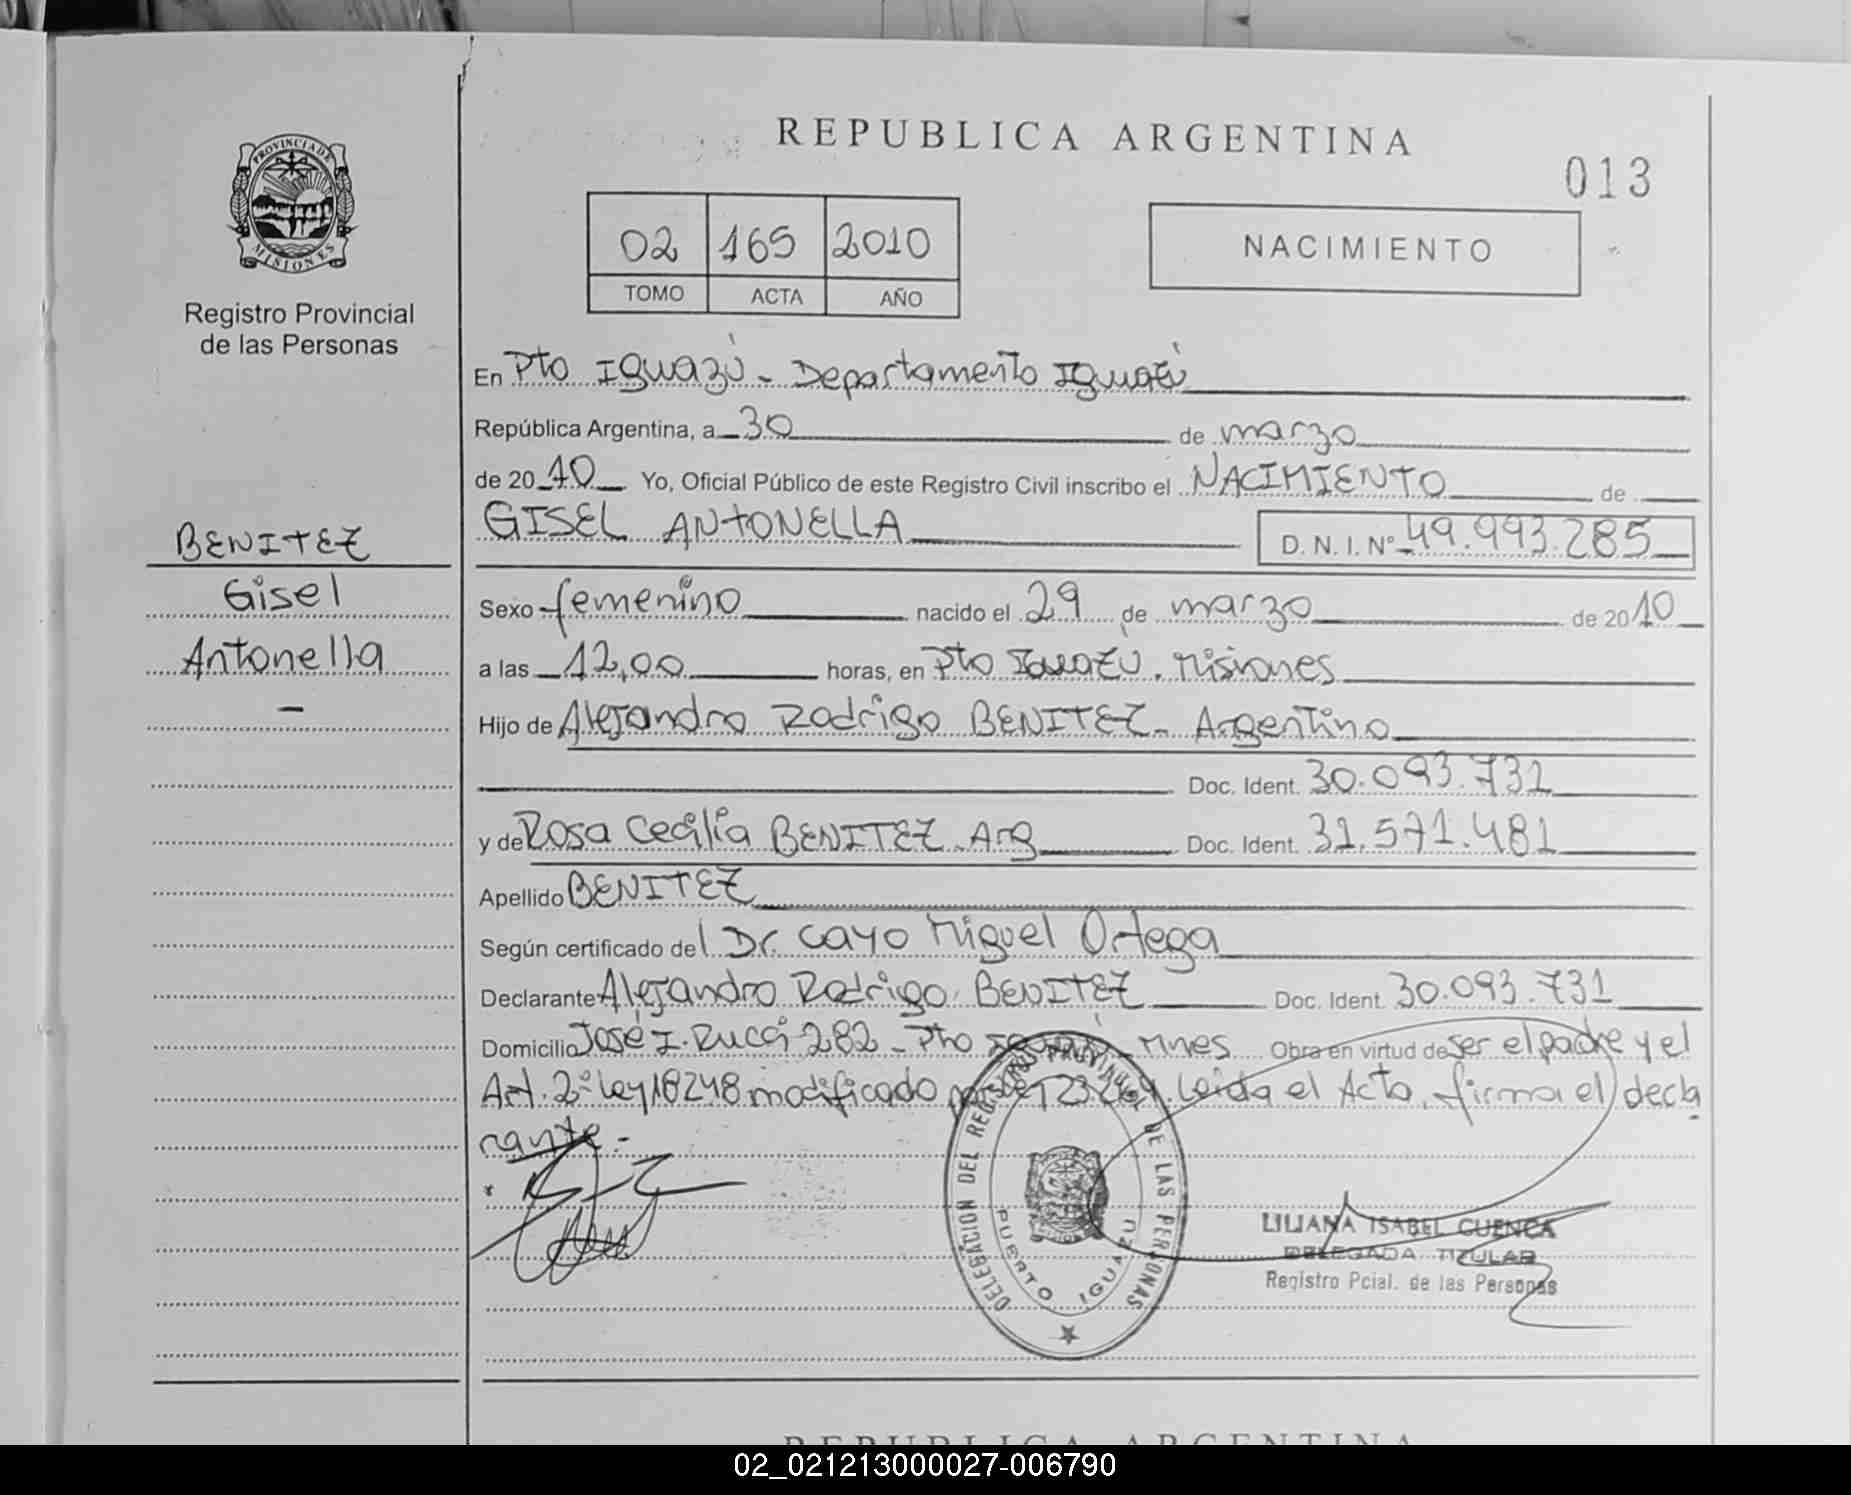 PROVINCIA DE
MISIONES
Registro Provincial
de las Personas
BENITEZ
Gisel
Antonella
REPUBLICA ARGENTINA
013
02 165 2010
TOMO ACTA AÑO
NACIMIENTO
En Pto Iguazú - Departamento Iguazú
República Argentina, a 30 de marzo
de 2010 Yo, Oficial Público de este Registro Civil inscribo el NACIMIENTO de
GISEL ANTONELLA D. N. I. Nº 49.993.285
Sexo femenino nacido el 29 de marzo de 2010
a las 12,00 horas, en Pto Iguazú. Misiones
Hijo de Alejandro Rodrigo BENITEZ - Argentino
Doc. Ident. 30.093.731
y de Rosa Cecilia BENITEZ - Arg Doc. Ident. 31.571.481
Apellido BENITEZ
Según certificado del Dr. Cayo Miguel Ortega
Declarante Alejandro Rodrigo BENITEZ Doc. Ident. 30.093.731
Domicilio José I. Rucci 282 - Pto Iguazú - Mnes Obra en virtud de ser el padre y el
Art. 2º Ley 18248 modificado por Ley 23.264. Leida el Acta, firma el decla
rante.-
DELEGACION DEL REGISTRO PROVINCIAL DE LAS PERSONAS
PUERTO IGUAZU
LILIANA ISABEL CUENCA
DELEGADA TITULAR
Registro Pcial. de las Personas
REPUBLICA ARGENTINA
02_021213000027-006790